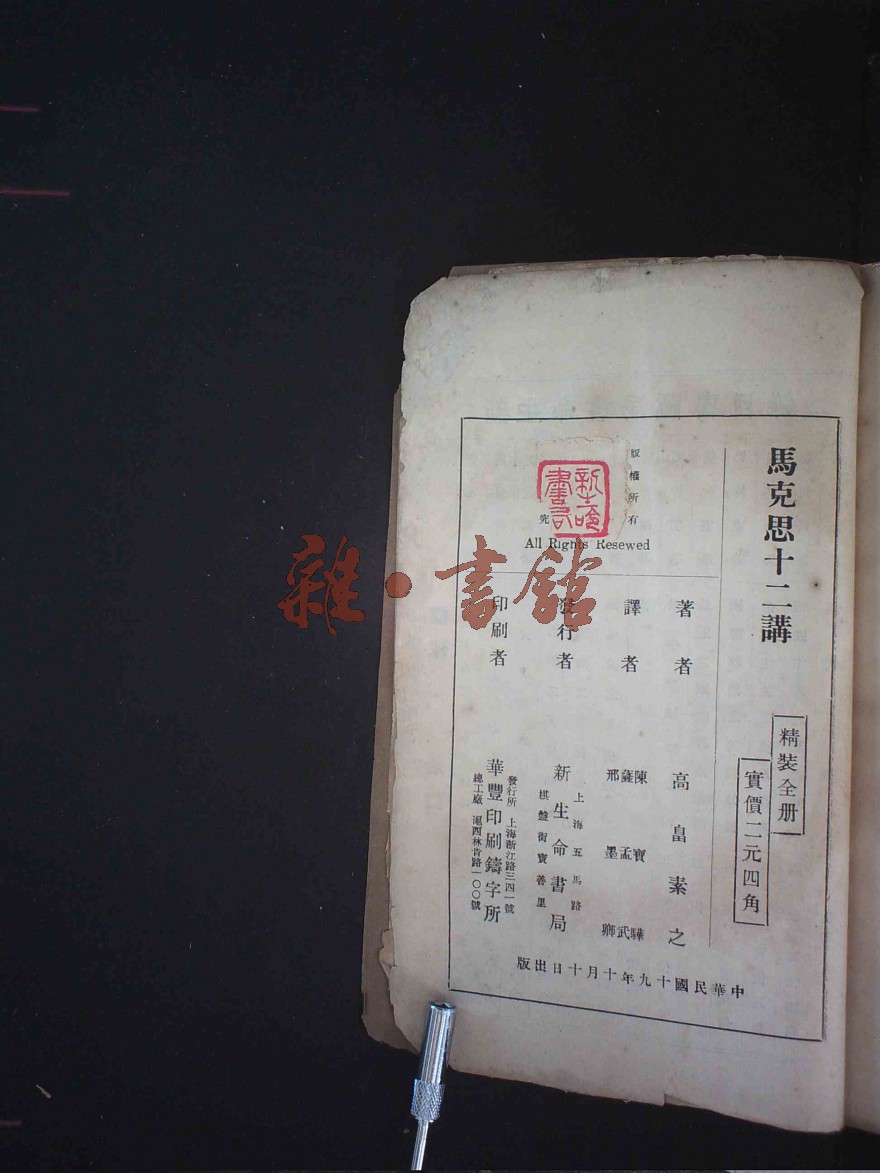 馬克思十二講
精裝全册
實價二元四角
版權所有
究
新生命書局
All Rights Resewed
著者 高畠素之
譯者 陳寶驊
薩孟武
邢墨卿
發行者 新生命書局
上海五馬路
棋盤街寶善里
印刷者 華豐印刷鑄字所
發行所 上海浙江路三四一號
總工廠 滬西林肯路一〇〇號
中華民國十九年十月十日出版
雜·書館